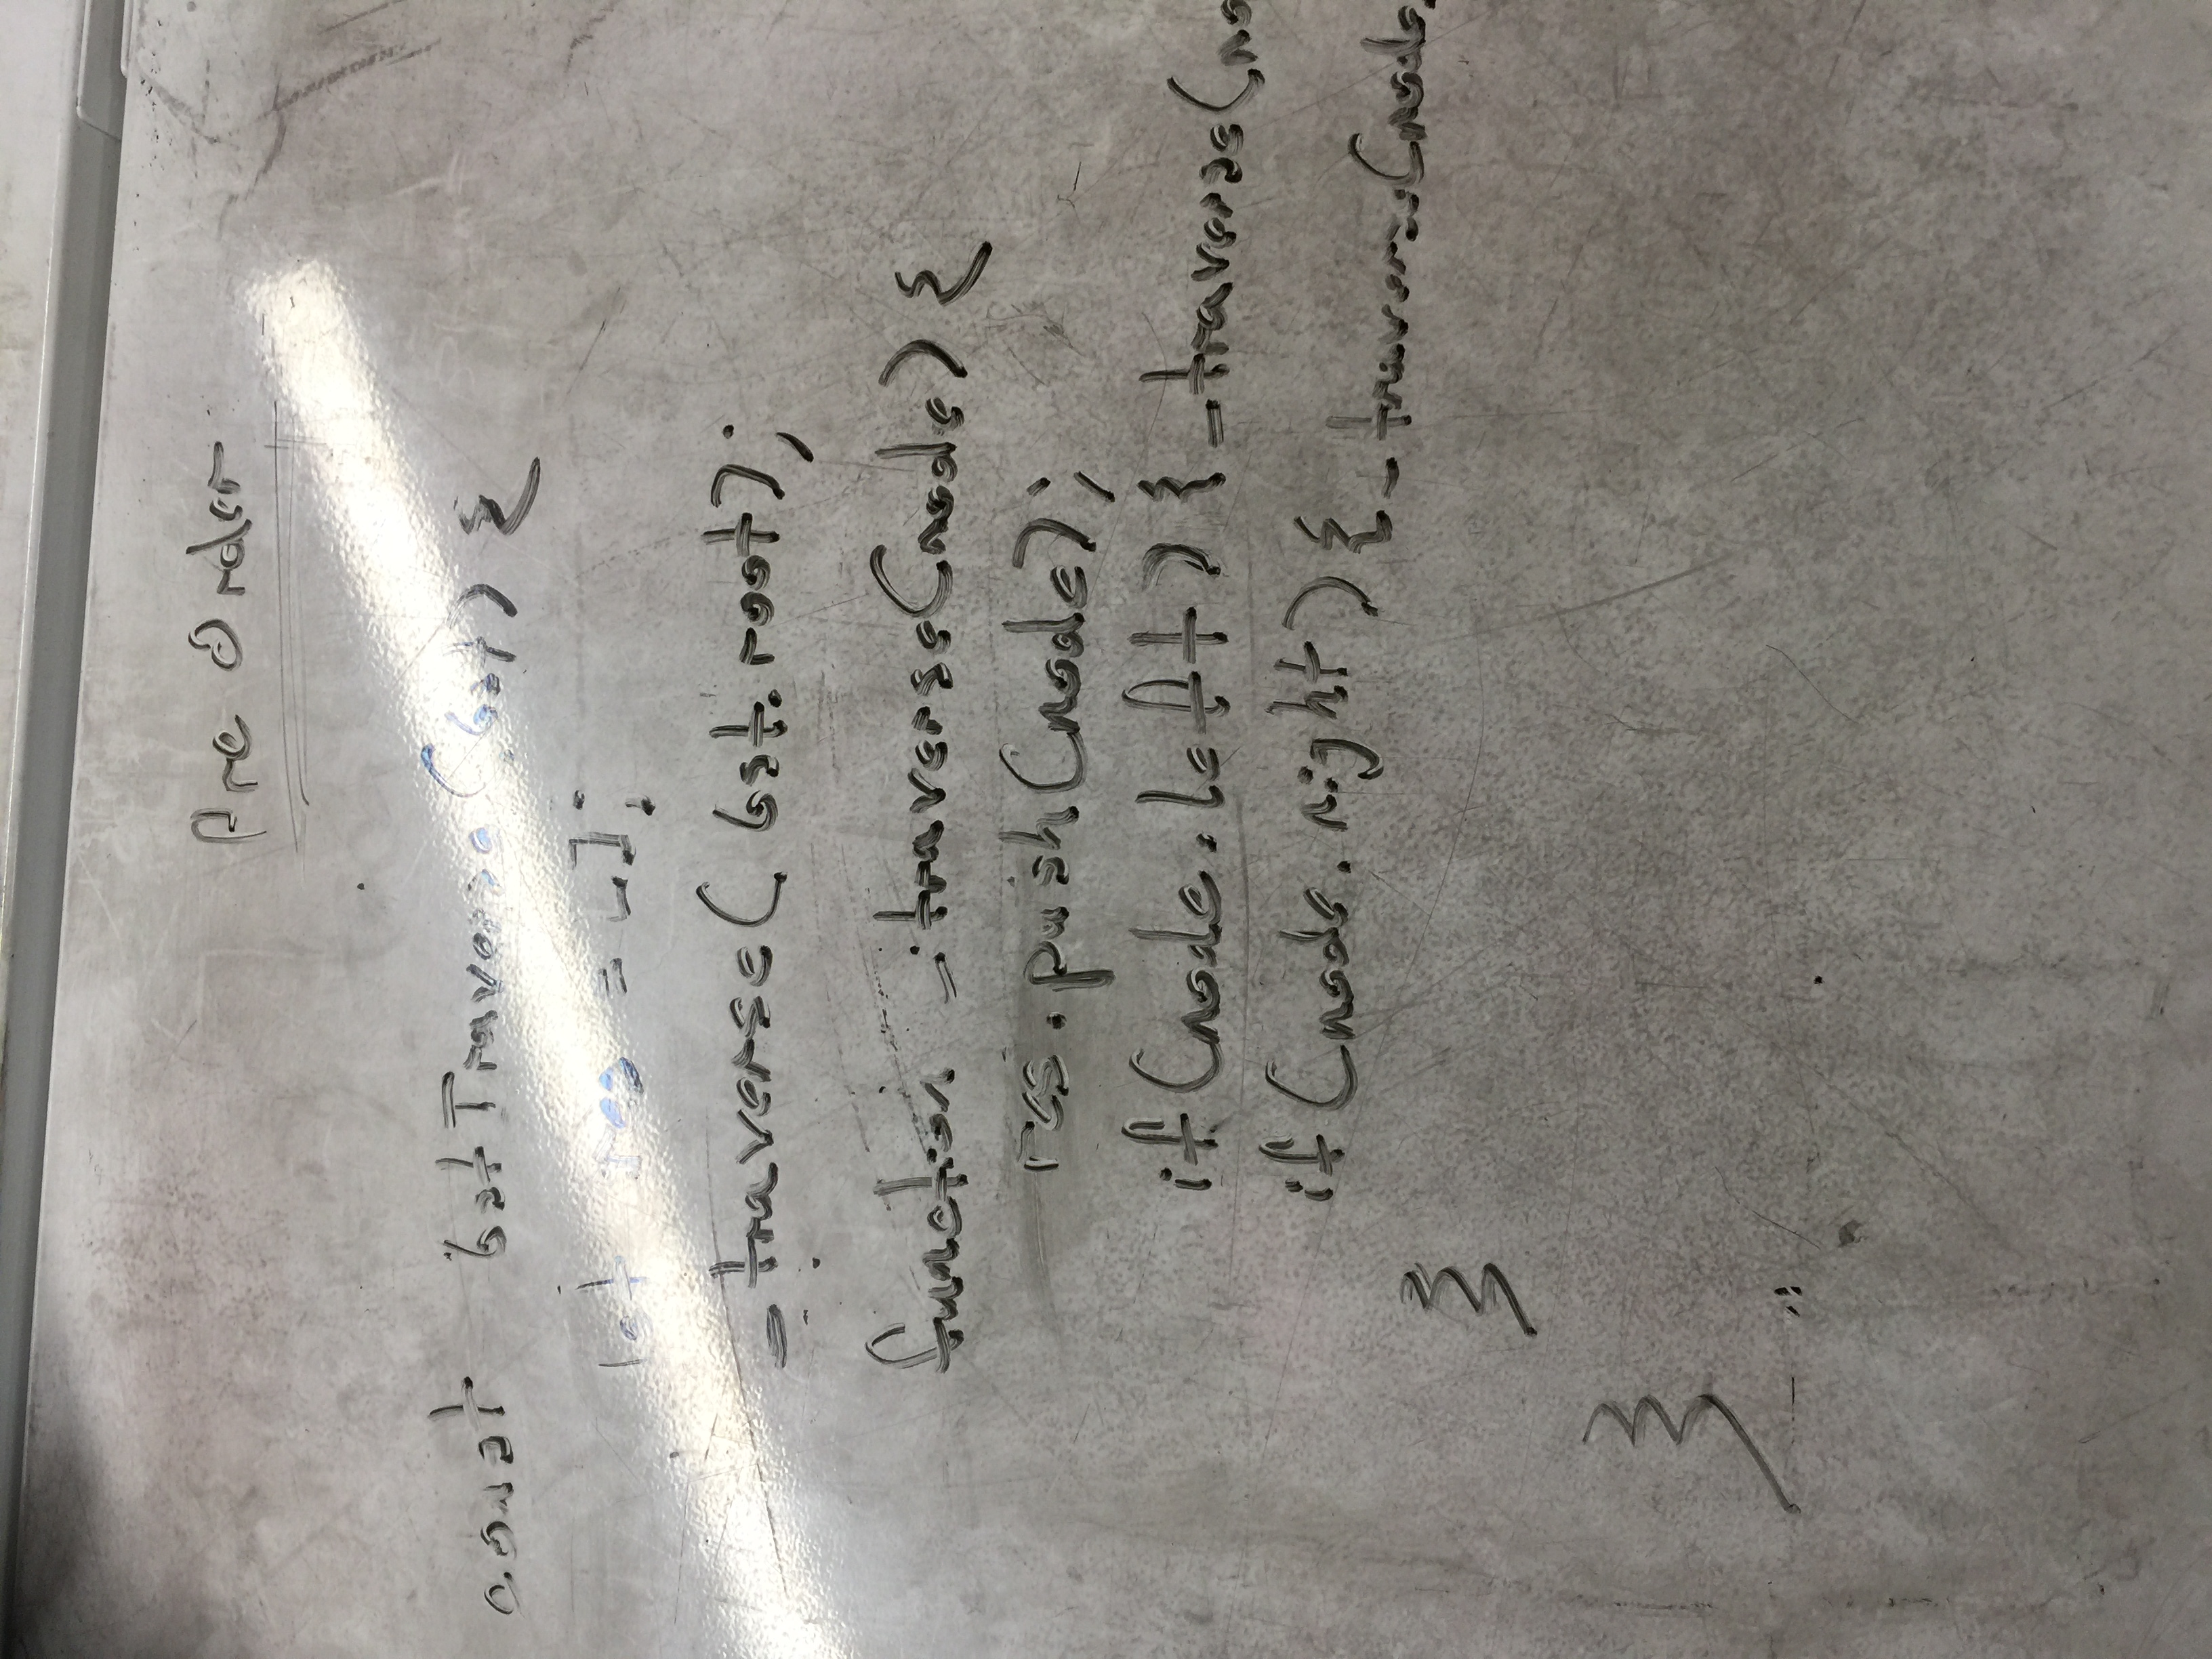 Pre Order
const bstTraverse(bst) {
let res = [];
_traverse(bst.root);
function _traverse(node) {
res.push(node);
if(node.left) {_traverse(no
if(node.right) {_traverse(node.
}
}